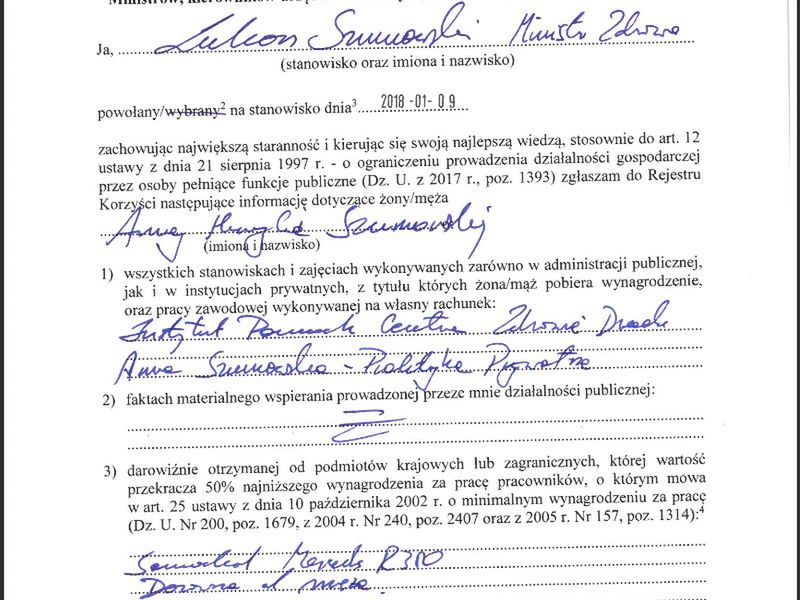 Ja, Łukasz Szumowski Minister Zdrowia
(stanowisko oraz imiona i nazwisko)
powołany/wybrany² na stanowisko dnia³ 2018 -01- 09
zachowując największą staranność i kierując się swoją najlepszą wiedzą, stosownie do art. 12
ustawy z dnia 21 sierpnia 1997 r. - o ograniczeniu prowadzenia działalności gospodarczej
przez osoby pełniące funkcje publiczne (Dz. U. z 2017 r., poz. 1393) zgłaszam do Rejestru
Korzyści następujące informację dotyczące żony/męża
Anny Szumowskiej
(imiona i nazwisko)
1) wszystkich stanowiskach i zajęciach wykonywanych zarówno w administracji publicznej,
jak i w instytucjach prywatnych, z tytułu których żona/mąż pobiera wynagrodzenie,
oraz pracy zawodowej wykonywanej na własny rachunek:
Instytut Centrum Zdrowia Dziecka
Anna Szumowska - Praktyka Prywatna
2) faktach materialnego wspierania prowadzonej przeze mnie działalności publicznej:
3) darowiźnie otrzymanej od podmiotów krajowych lub zagranicznych, której wartość
przekracza 50% najniższego wynagrodzenia za pracę pracowników, o którym mowa
w art. 25 ustawy z dnia 10 października 2002 r. o minimalnym wynagrodzeniu za pracę
(Dz. U. Nr 200, poz. 1679, z 2004 r. Nr 240, poz. 2407 oraz z 2005 r. Nr 157, poz. 1314):⁴
Samochód Mercedes R350
od męża